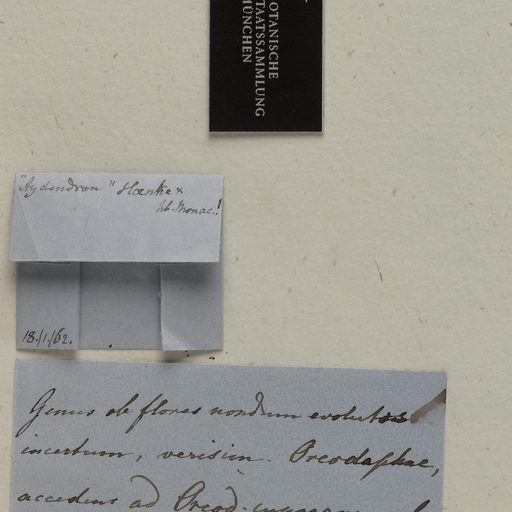 OTANISCHE
TAATSSAMMLUNG
MÜNCHEN
"Aydendron" Haenke
hb. Monac.!
18./1./62.
Genus ob flores nondum evolutos
incertum, verisim. Oreodaphne,
accedens ad Oreod.